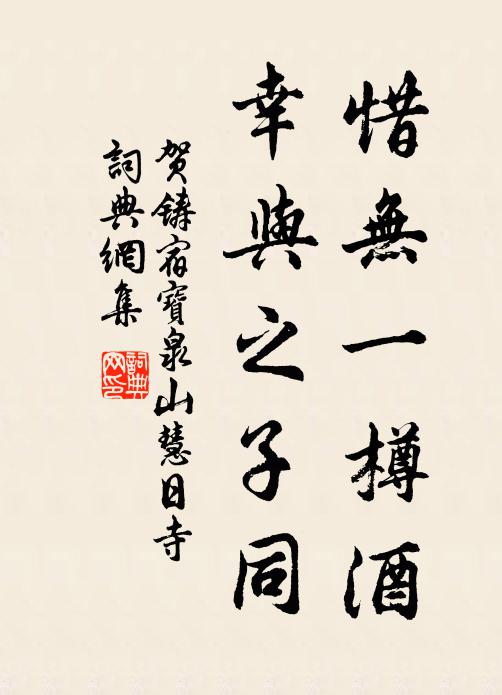 惜無一樽酒
幸與之子同
賀鑄宿寶泉山慧日寺
詞典網集
詞典網印